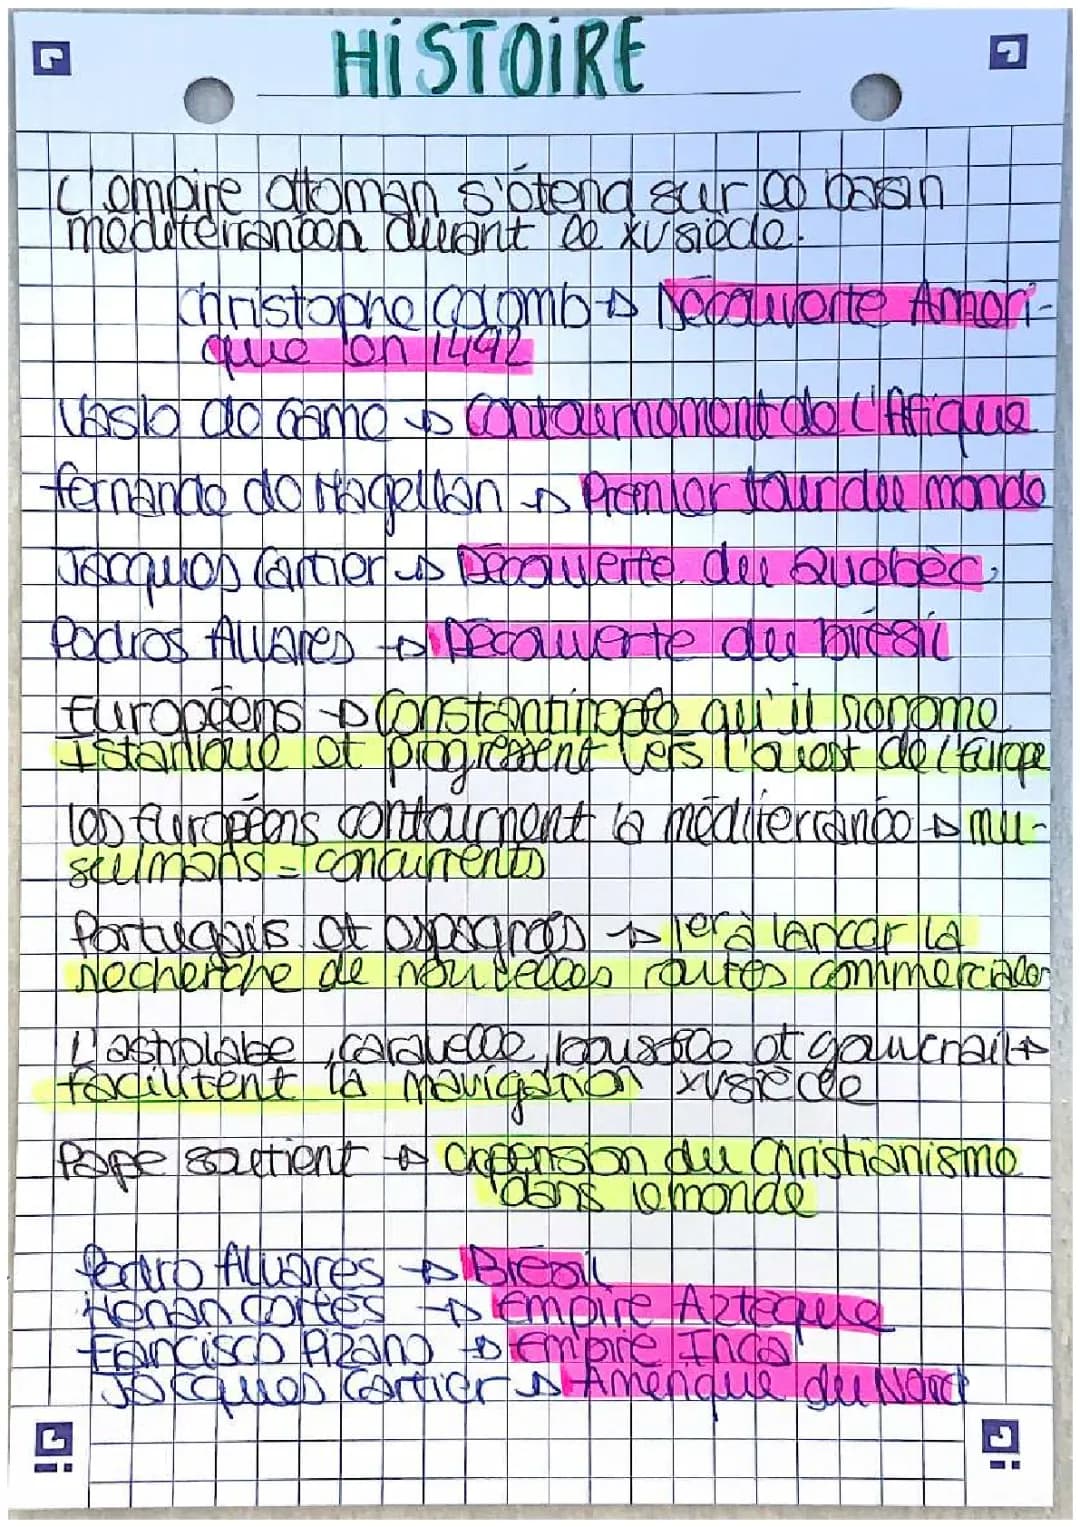 HISTOIRE
L'empire ottoman s'étend sur le basin
méditerranéen durant le XV siècle.
Christophe Colomb → Découverte Améri-
que en 1492
Vasko de Game → Contournement de l'Afique
fernande de Magellan → Premier tour du monde
Jacques Cartier → Découverte du Quebèc.
Pedros Alvares → Découverte du brésil
Européens → Constantinople qu'il renome
Istanloue et progressent vers l'ouest de l'Europe
les Européens contournent la méditerranée → mu-
sulmans = concurrents
Portugais et espagnols → 1er à lancer la
recherche de nouvelles routes commerciales
L'astrolabe, caravelle, boussole et gouvernail →
facilitent la navigation XV siècle
Pape soutient → expension du Christianisme
dans le monde
Pedro Alvares → Brésil
Henan Cortés → Empire Aztèque
Francisco Pizano → Empire Inca
Jacques Cartier → Amérique du Nord